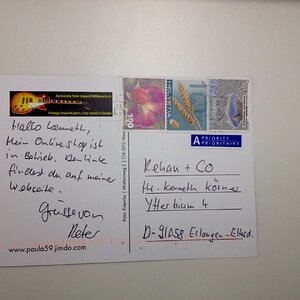 Exclusively from
Vintage inspired parts, Cryo tuned in Europe
Hallo Kenneth,
Mein Onlineshop ist
in Betrieb. Den Link
findest du auf meiner
Webseite.
Grüsse von
Peter
www.paula59.jimdo.com
100
HELVETIA
A PRIORITY
PRIORITAIRE
Rehan + CO
Hr. Kenneth Körner
Ytterbium 4
D-91058 Erlangen-Eltersd.